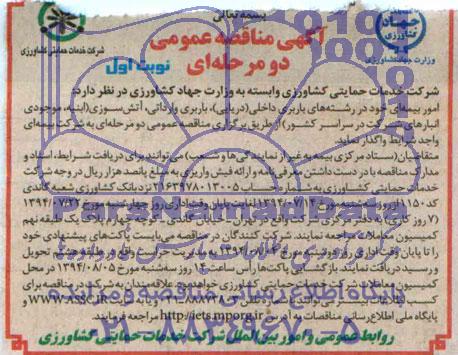 بسمه تعالی
آگهی مناقصه عمومی
دو مرحله‌ای
نوبت اول
جهاد
کشاورزی
وزارت جهاد کشاورزی
شرکت خدمات حمایتی کشاورزی
شرکت خدمات حمایتی کشاورزی وابسته به وزارت جهاد کشاورزی در نظر دارد:
امور بیمه‌ای خود در رشته‌های باربری داخلی (دریایی)، باربری وارداتی، آتش‌سوزی (ابنیه، موجودی
انبارهای شرکت در سراسر کشور) از طریق برگزاری مناقصه عمومی دو مرحله‌ای به شرکت بیمه‌ای
واجد شرایط واگذار نماید.
متقاضیان (ستاد مرکزی بیمه به غیر از نمایندگی‌ها و شعب) می‌توانند برای دریافت شرایط، اسناد و
مدارک مناقصه با در دست داشتن معرفی نامه و ارائه فیش واریزی به مبلغ پانصد هزار ریال در وجه شرکت
خدمات حمایتی کشاورزی به شماره حساب نزد بانک کشاورزی شعبه
کد ۱۱۵۰ از روز سه‌شنبه مورخ ۱۳۹۴/۰۷/۱۴ لغایت پایان وقت اداری روز چهارشنبه مورخ ۱۳۹۴/۰۷/۲۲
(۷ روز کاری) به دفتر مرکزی شرکت واقع در تهران، خیابان پلاک یک طبقه نهم
کمیسیون معاملات مراجعه نمایند. شرکت کنندگان در مناقصه می‌بایست پاکت‌های پیشنهادی خود
را تا پایان وقت اداری روز دوشنبه مورخ به مدیریت حراست واقع در طبقه تحویل
و رسید دریافت نمایند. بازگشایی پاکت‌ها راس ساعت ۱۰ روز سه‌شنبه مورخ ۱۳۹۴/۰۸/۰۵ در محل
کمیسیون معاملات شرکت خدمات حمایتی کشاورزی خواهد بود. علاقه‌مندان به شرکت در مناقصه برای
کسب اطلاعات بیشتر می‌توانند با شماره تلفن و یا به سایت WWW.ASSC.IR و
پایگاه ملی اطلاع‌رسانی مناقصات به آدرس http://iets.mporg.ir مراجعه فرمایند.
روابط عمومی و امور بین الملل شرکت خدمات حمایتی کشاورزی
ParsNamadData
پایگاه اطلاع رسانی مناقصه و مزایده
۰۲۱-۸۸۳۴۹۶۷۰-۵